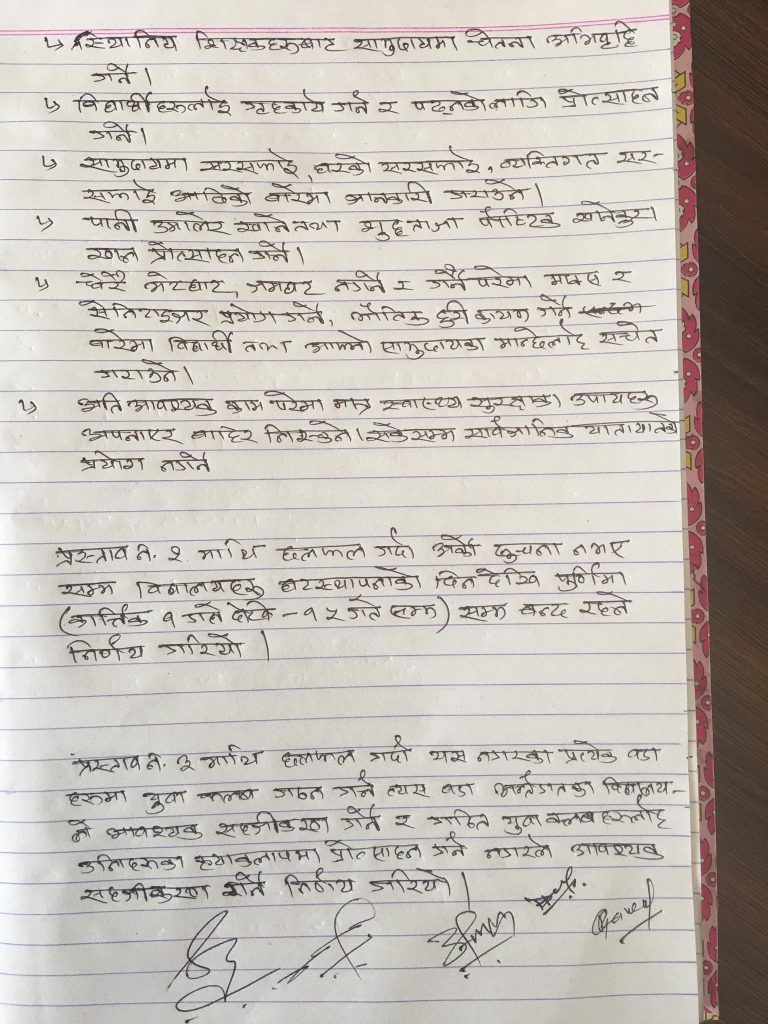 ↳ स्थानिय शिक्षकहरुबाट सामुदायमा चेतना अभिवृद्दि
गर्ने ।
↳ विद्यार्थीहरुलाई गृहकार्य गर्न र पढ्नकोलागि प्रोत्साहन
गर्ने ।
↳ सामुदायमा सरसफाई, घरको सरसफाई, व्यक्तिगत सर-
सफाई आदिको बारेमा जानकारी गराउने ।
↳ पानी उमालेर खाने तथा शुद्द ताजा पौष्टिक खानेकुरा
खान प्रोत्साहन गर्ने ।
↳ धेरै भेटघाट, जमघट नगर्ने र गर्नै परेमा मास्क र
सेनिटाइजर प्रयोग गर्ने, भौतिक दुरी कायम गर्ने
बारेमा विद्यार्थी तथा आफ्नो सामुदायका मान्छेलाई सचेत
गराउने ।
↳ अति आवश्यक काम परेमा मात्र स्वास्थ्य सुरक्षाका उपायहरु
अपनाएर बाहिर निस्कने । सकेसम्म सार्वजानिक यातायातको
प्रयोग नगर्ने
प्रस्ताव नं. २ माथि छलफल गर्दा अर्को सुचना नभए
सम्म विद्यालयहरु घटस्थापनाको दिन देखि पुर्णिमा
(कार्त्तिक १ गते देखि - १५ गते सम्म) सम्म बन्द रहने
निर्णय गरियो ।
प्रस्ताव नं. ३ माथि छलफल गर्दा यस नगरका प्रत्येक वडा
हरुमा युवा क्लब गठन गर्न त्यस वडा अर्न्तगतका विद्यालय-
ले आवश्यक सहजीकरण गर्ने र गठित युवा क्लबहरुलाई
उनिहरुका क्रृयाकलापमा प्रोत्साहन गर्न नगरले आवश्यक
सहजीकरण गर्ने निर्णय गरियो ।